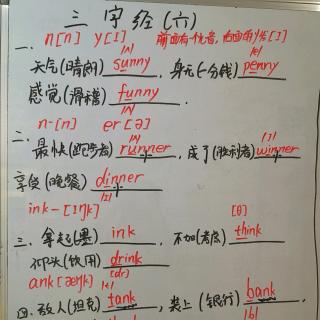 三字经(六)
n[n] y[I] 前面有一元音，
一、 [ʌ] [e]
天气(晴朗) sunny，身无(一分钱) penny
感觉(滑稽) funny.
[ʌ]
n-[n] er[ə]
二、 [ʌ] [I]
最快(跑步者) runner，成了(胜利者) winner
享受(晚餐) dinner
[I]
ink-[Iŋk] [θ]
三、拿起(墨) ink，不加(考虑) think
仰头(饮用) drink
ank[æŋk] [dr]
四、敌人(坦克) tank，装上(银行) bank.
[b]